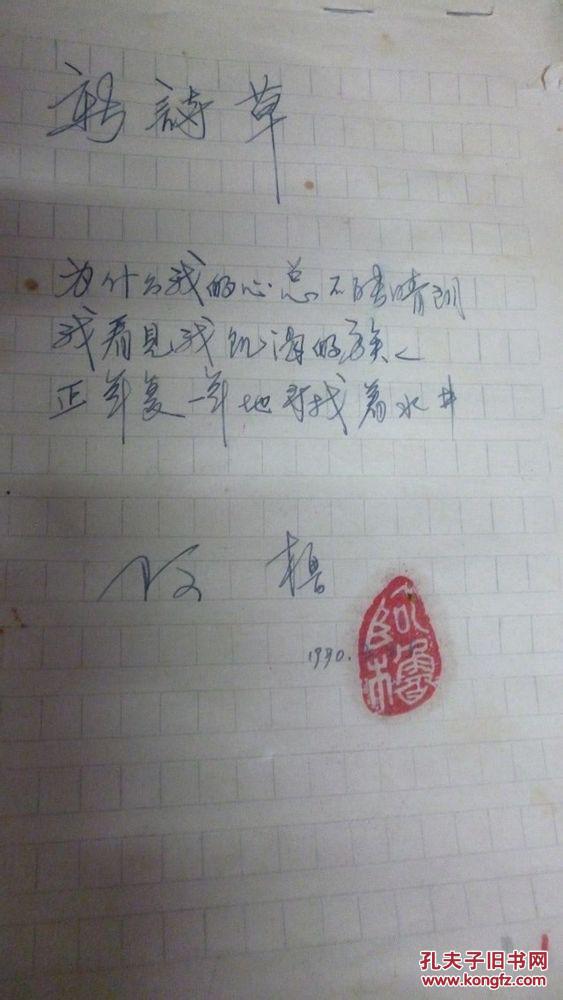 新詩草
为什么我的心总不能晴朗
我看見我饥渴的族人
正年复一年地寻找着水井
阿橹
1990.
阿櫓
孔夫子旧书网
www.kongfz.com